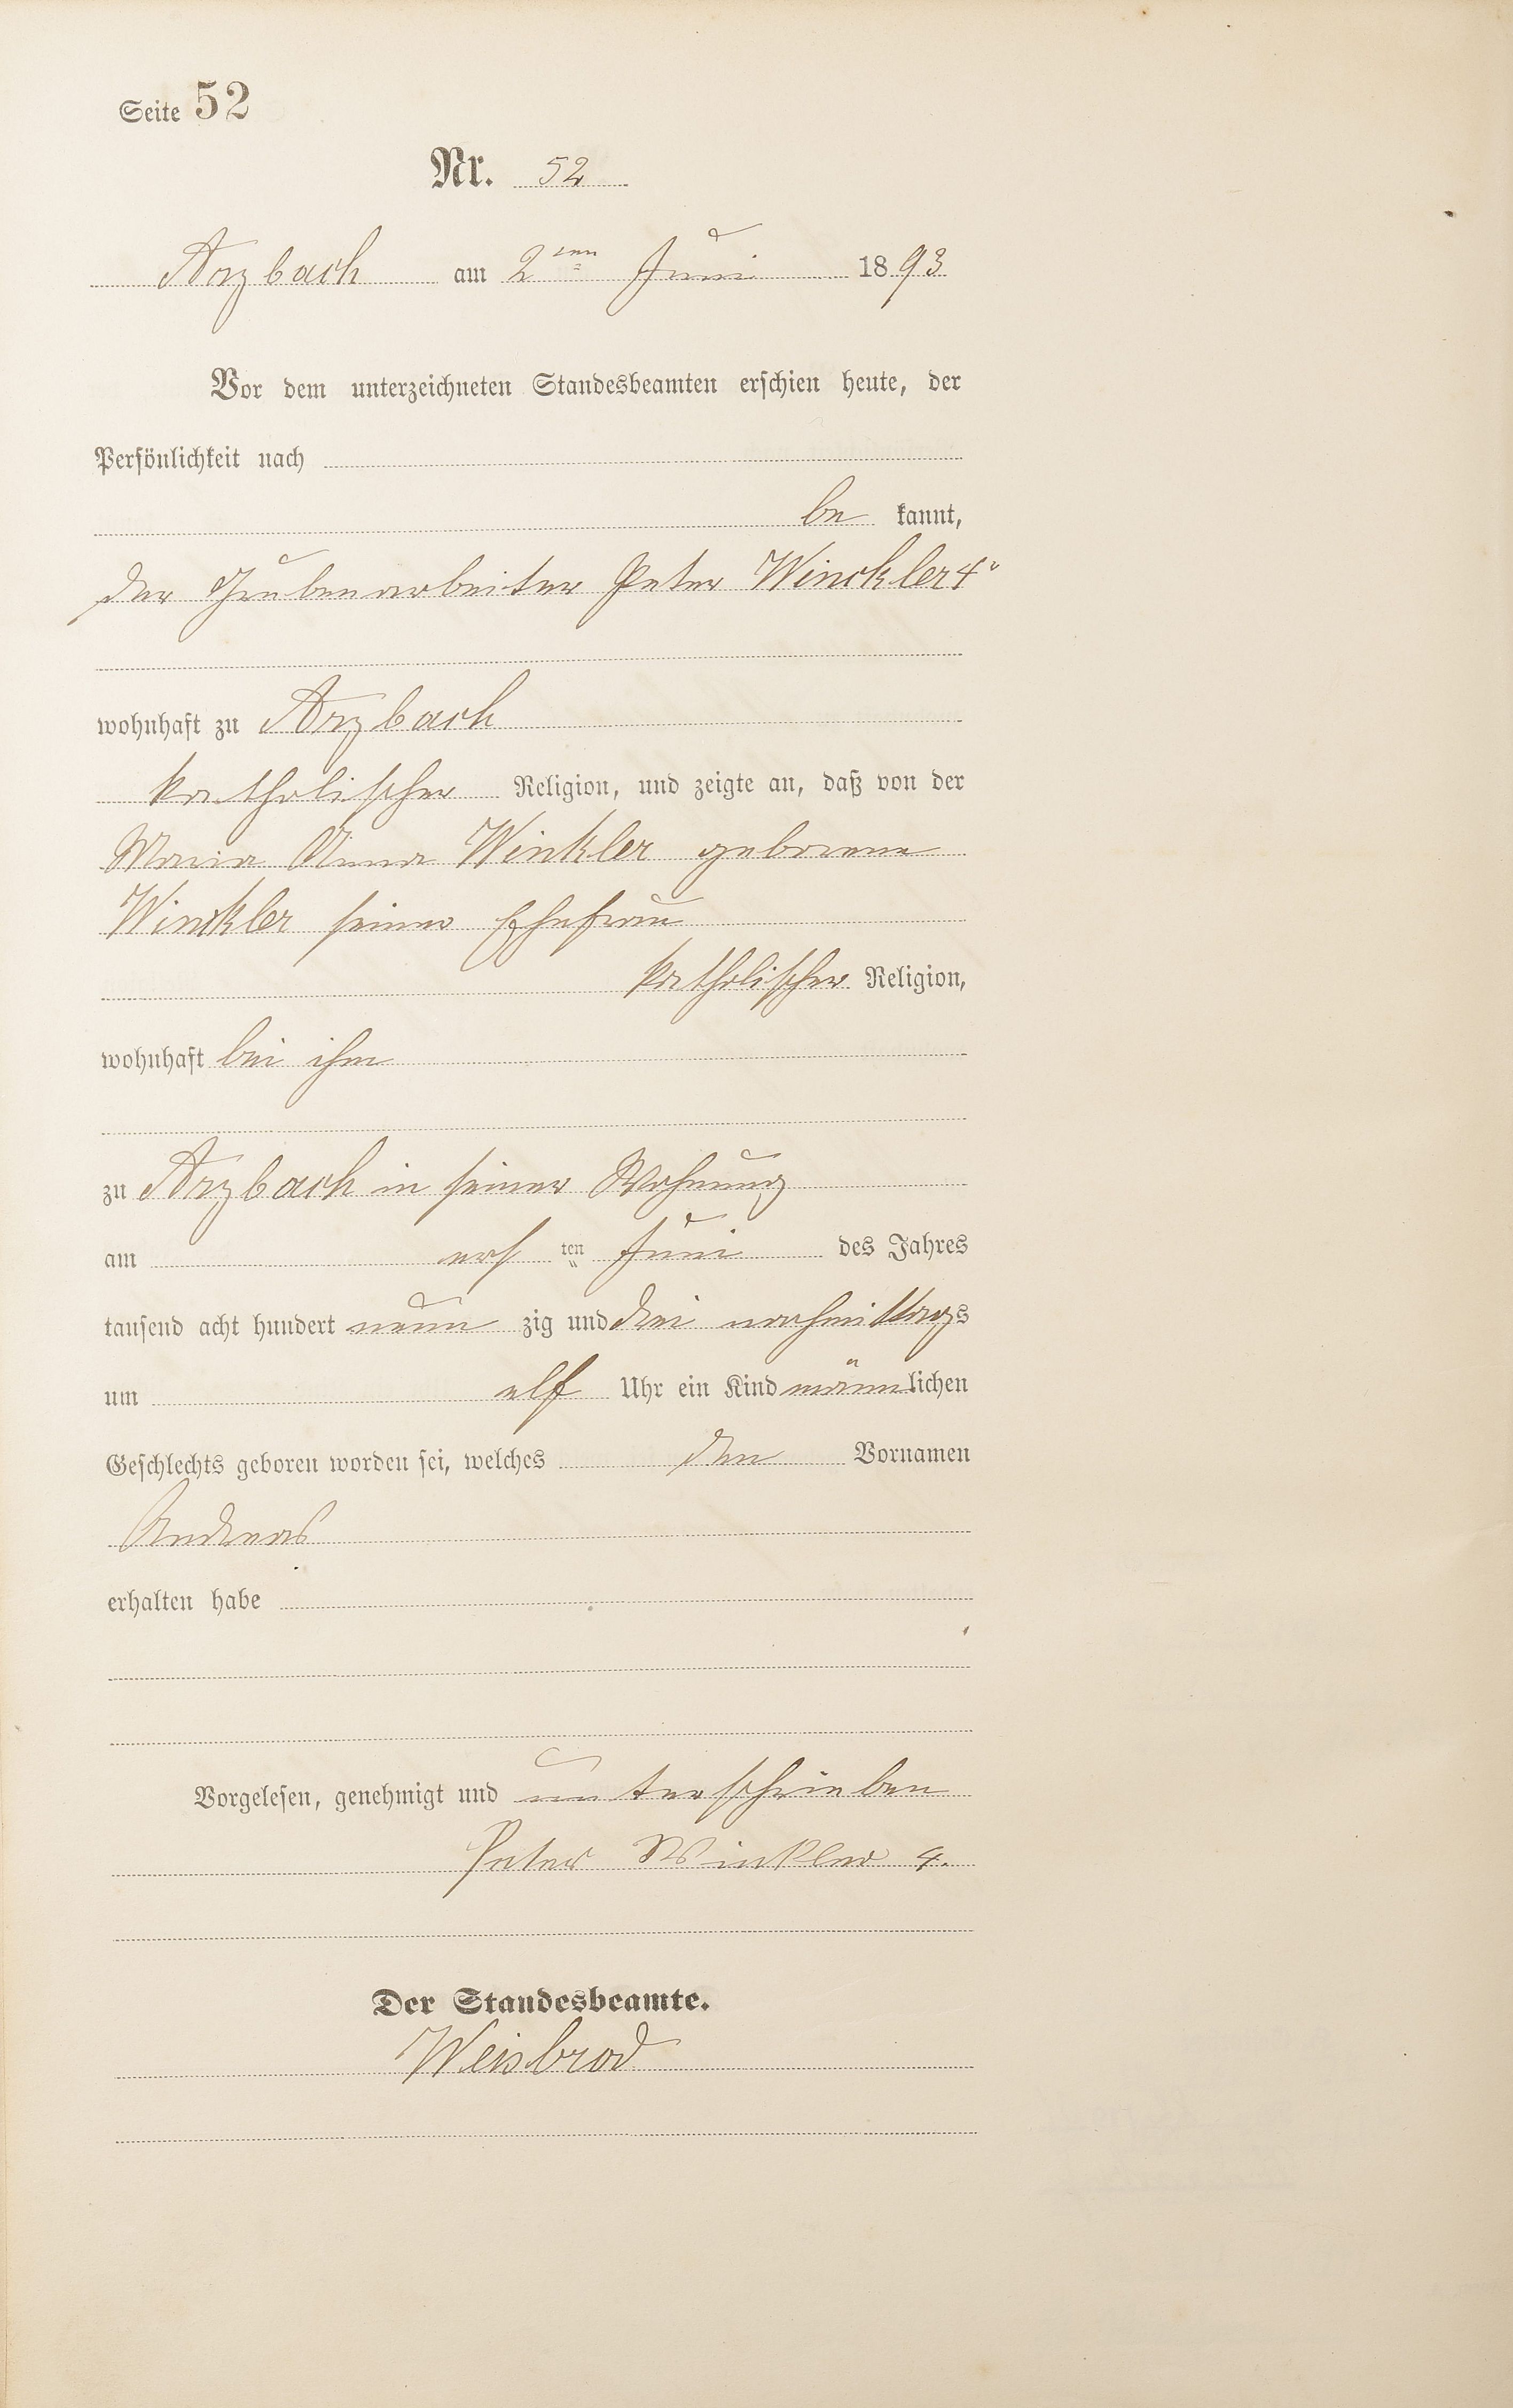 Seite 52
Nr. 52
Arzbach am 2ten Juni 1893
Vor dem unterzeichneten Standesbeamten erschien heute, der
Persönlichkeit nach
be kannt,
der Grubenarbeiter Peter Winckler 4r
wohnhaft zu Arzbach
katholischer Religion, und zeigte an, daß von der
Maria Anna Winkler geborene
Winckler seiner Ehefrau
katholischer Religion,
wohnhaft bei ihm
zu Arzbach in seiner Wohnung
am ers ten Juni des Jahres
tausend acht hundert neun zig und drei nachmittags
um elf Uhr ein Kind männlichen
Geschlechts geboren worden sei, welches den Vornamen
Andreas
erhalten habe
Vorgelesen, genehmigt und unterschrieben
Peter Winkler 4.
Der Standesbeamte.
Weisbrod